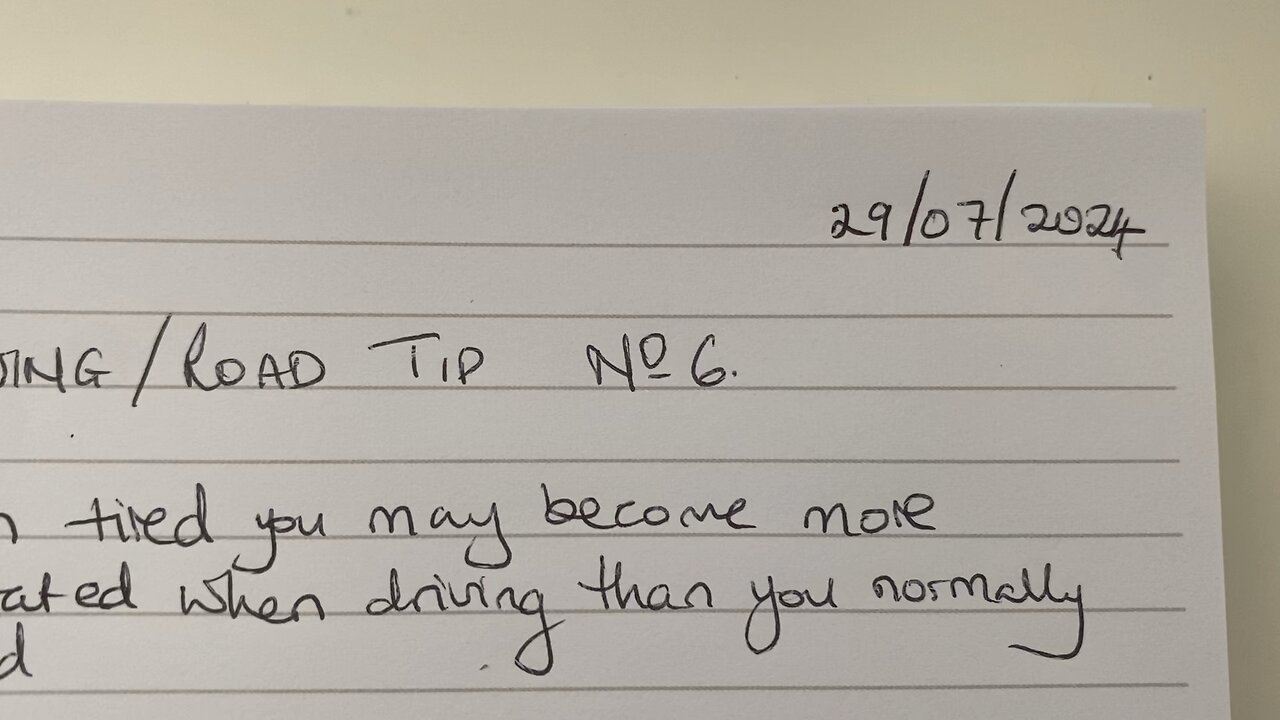 29/07/2024
ING/ROAD TIP Nº 6.
n tired you may become more
ated when driving than you normally
d